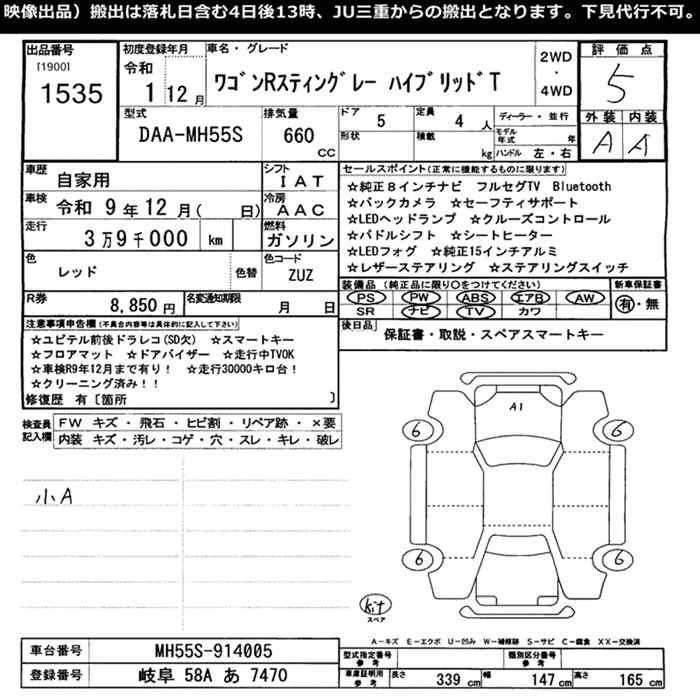 映像出品）搬出は落札日含む4日後13時、JU三重からの搬出となります。下見代行不可。
出品番号
[1900]
1535
初度登録年月
令和
1 12 月
車名・グレード
ワゴンRスティングレー ハイブリッドT
2WD
・
4WD
評価点
5
型式
DAA-MH55S
排気量
660
CC
ドア 5
定員 4 人
ディーラー・並行
形状
積載 kg
モデル年式 年
ハンドル 左・右
外装 内装
A A
車歴
自家用
シフト
IAT
車検
令和 9年12月( 日)
冷房
AAC
走行
3万9千000 km
燃料
ガソリン
色
レッド
色替
色コード
ZUZ
R券
8,850円
名変通知期限
月 日
セールスポイント(正常に機能するものに限ります)
☆純正8インチナビ フルセグTV Bluetooth
☆バックカメラ ☆セーフティサポート
☆LEDヘッドランプ ☆クルーズコントロール
☆パドルシフト ☆シートヒーター
☆LEDフォグ ☆純正15インチアルミ
☆レザーステアリング ☆ステアリングスイッチ
装備品 (純正品に限り○をつけてください)
新車保証書
PS PW ABS エアB AW
SR ナビ TV カワ
有・無
後日品
保証書・取説・スペアスマートキー
注意事項申告欄(不具合内容等は具体的に記入して下さい)
☆ユピテル前後ドラレコ(SD欠) ☆スマートキー
☆フロアマット ☆ドアバイザー ☆走行中TVOK
☆車検R9年12月まで有り！ ☆走行30000キロ台！
☆クリーニング済み！！
修復歴 有〔箇所 〕
検査員
記入欄
FW キズ・飛石・ヒビ割・リペア跡・×要
内装 キズ・汚レ・コゲ・穴・スレ・キレ・破レ
小A
A1
6 6
6 6
kit
スペア
A-キズ E-エクボ U-凹み W-補修跡 S-サビ C-腐食 XX-交換済
車台番号
MH55S-914005
登録番号
岐阜 58A あ 7470
型式指定番号
参考
類別区分番号
参考
車庫証明用
参考
長さ 339 cm
幅 147 cm
高さ 165 cm